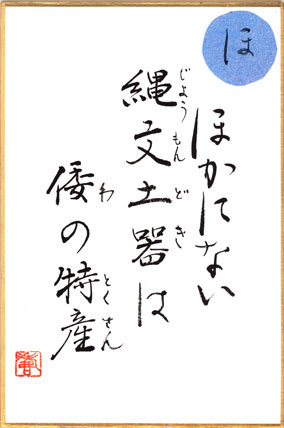 ほ
ほかにない
縄文土器は
じょうもんどき
倭の特産
わ とくさん